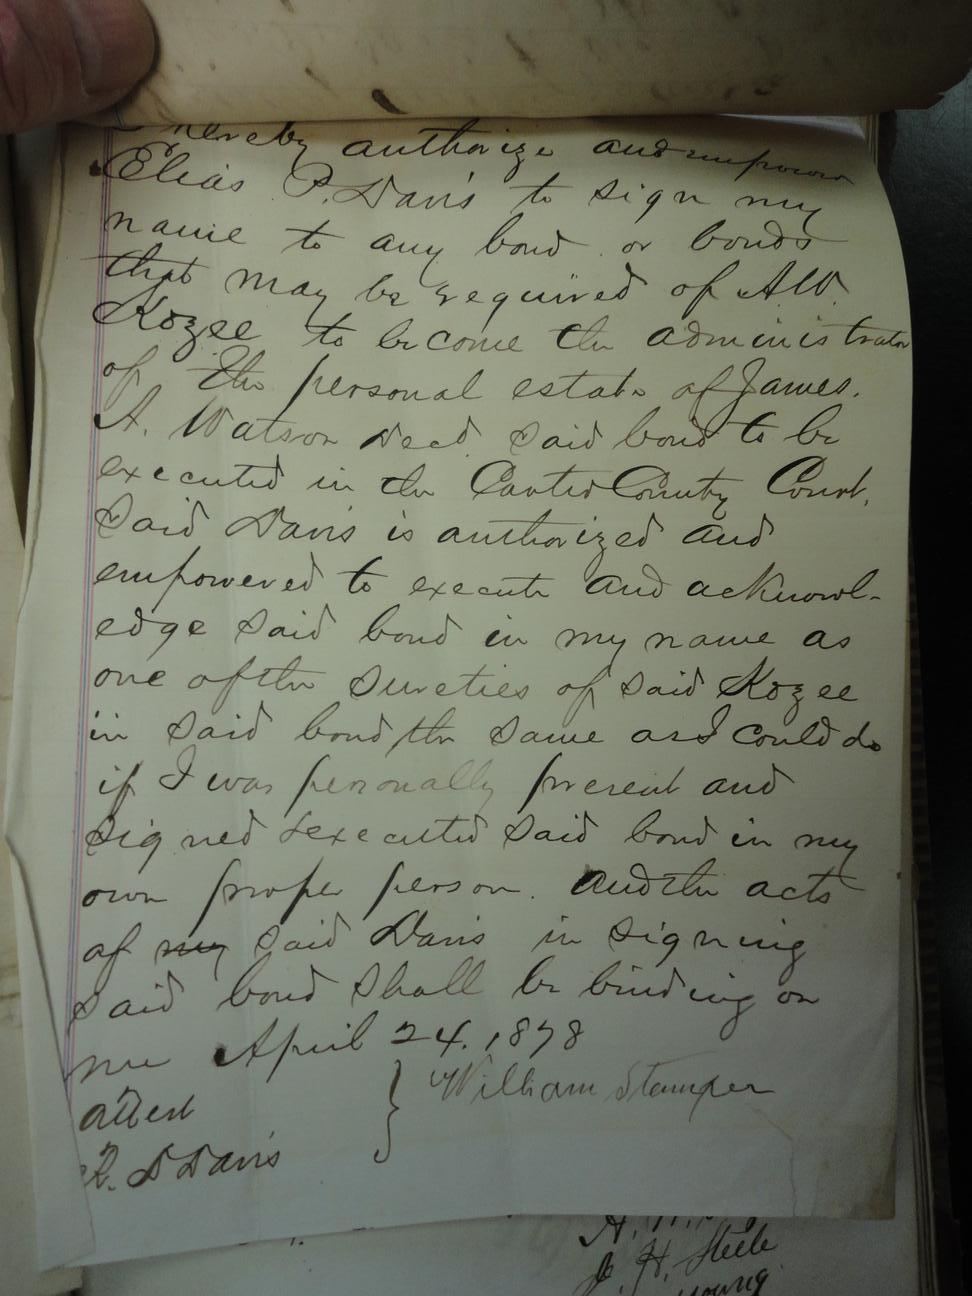 I hereby authorize and empower
Elias P. Davis to sign my
name to any bond or bonds
that may be required of A.W.
Kozee to become the administrator
of the personal estate of James.
A. Watson Decd. Said bond to be
executed in the Carter County Court.
Said Davis is authorized and
empowered to execute and acknowl-
edge said bond in my name as
one of the sureties of said Kozee
in said bond the same as I could do
if I was personally present and
signed & executed said bond in my
own proper person. And the acts
of my said Davis in signing
said bond shall be binding on
me April 24. 1878
attest
William Stamper
D Davis
J. H. Steele
Young